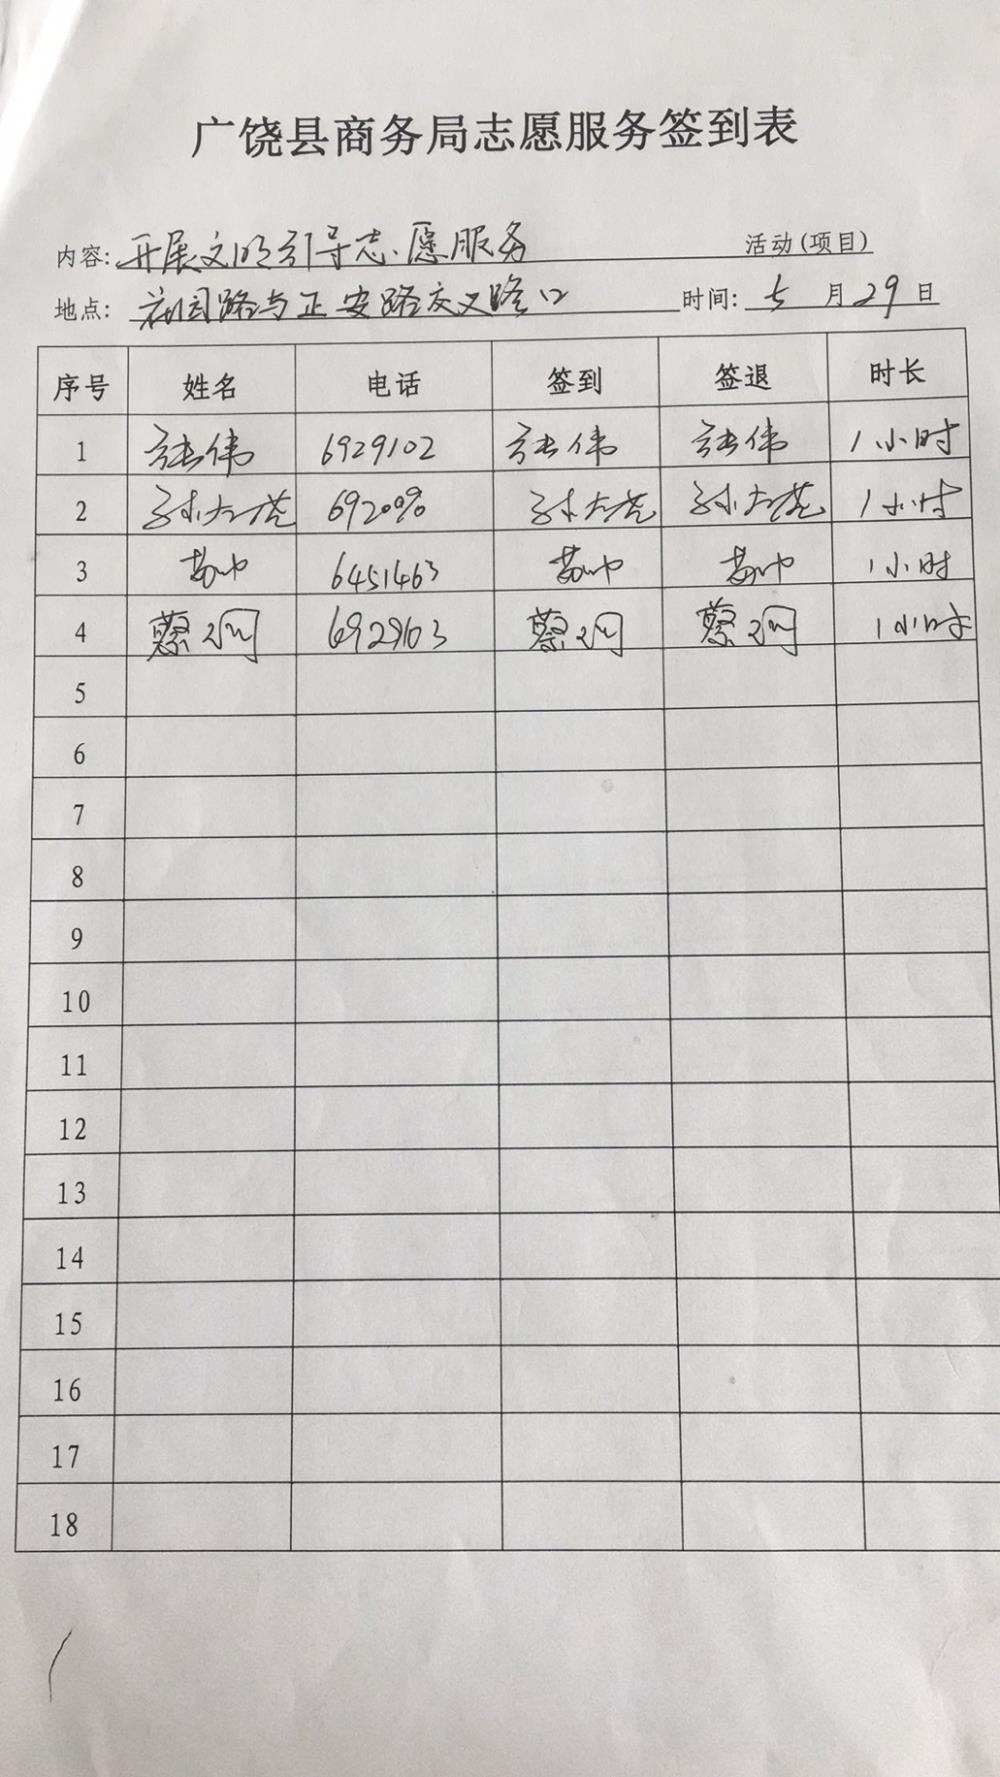 广饶县商务局志愿服务签到表
内容: 开展文明引导志愿服务 活动(项目)
地点: 花园路与正安路交叉路口 时间: 5 月 29 日
序号 姓名 电话 签到 签退 时长
1 张伟 6929102 张伟 张伟 1小时
2 孙大虎 孙大虎 孙大虎 1小时
3 6451463 1小时
4 蔡 6929103 蔡 蔡 1小时
5
6
7
8
9
10
11
12
13
14
15
16
17
18